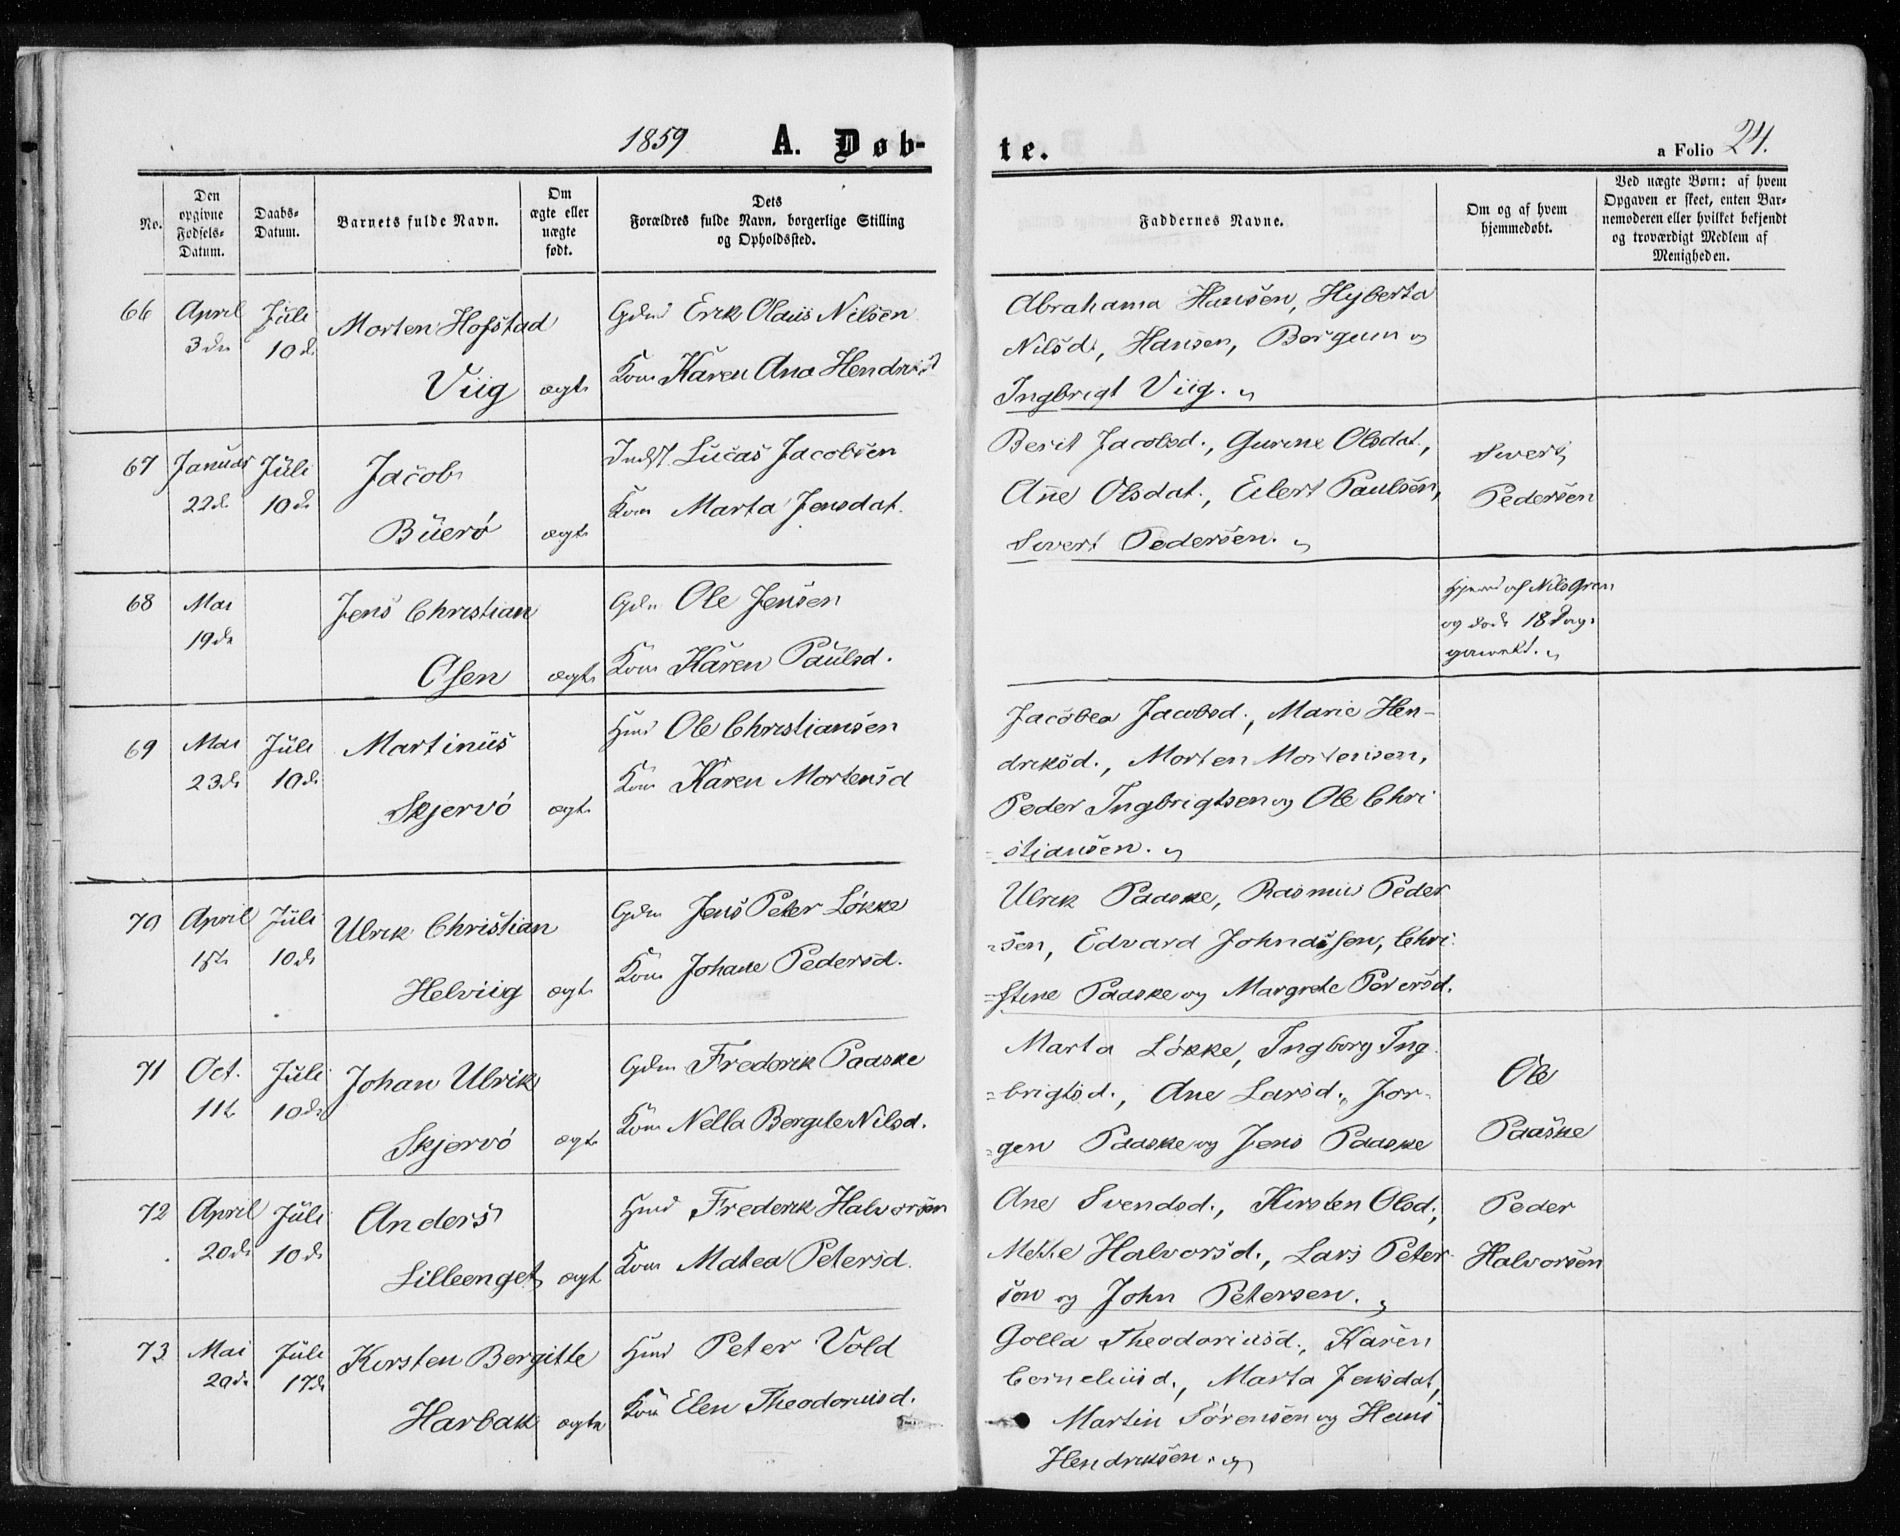 1859 A. Døb-
te.
a Folio 24.
No.
Den
opgivne
Fødsels-
Datum.
Daabs-
Datum.
Barnets fulde Navn.
Om
ægte eller
uægte
født.
Dets
Forældres fulde Navn, borgerlige Stilling
og Opholdssted.
Faddernes Navne.
Om og af hvem
hjemmedøbt.
Ved uægte Børn: af hvem
Opgaven er skeet, enten Bar-
nemoderen eller hvilket bekjendt
og troværdigt Medlem af
Menigheden.
66
April
3de
Juli
10d
Morten Hofstad
Viig
ægte
Gdmd Erik Olaus Nilsen
Kone Karen Ana Hendrikd
Abrahama Hansen, Hyberta
Nilsd., Hansen, Borgum og
Ingbrigt Viig.
67
Januar
22d
Juli
10d
Jacob
Büerö
ægt
Indst Lucas Jacobsen
Kone Marta Jensdat.
Berit Jacobsd., Gurine Olsdat.,
Ane Olsdat., Eilert Paulsen,
Sivert Pedersen.
Sivert
Pedersen
68
Mai
19de
Jens Christian
Osen
ægte
Gdm Ole Jensen
Kone Karen Paulsd.
Hjemd af Nils Gren
og døde 18 Dage
gammel.
69
Mai
23de
Juli
10de
Martinus
Skjervö
ægt.
Hmd Ole Christiansen
Kone Karen Mortensd
Jacobea Jacobsd., Marie Hen-
driksd., Morten Mortensen,
Peder Ingbrigtsen og Ole Chri
stiansen.
70
April
15t
Juli
10de
Ulrik Christian
Helviig
ægt.
Gdm Jens Peter Løkke
Kone Johane Pedersd.
Ulrik Paaske, Rasmus Peder
=sen, Edvard Johnassen, Chri
=stine Paaske og Margrete Pedersd.
71
Oct.
11t
Juli
10de
Johan Ulrik
Skjervö
ægte
Gdm Frederik Paaske
Kone Nella Bergite Nilsd.
Marta Løkke, Ingborg Ing
=brigtsd., Ane Larsd., Jør-
=gen Paaske og Jens Paaske
Ole
Paaske
72
April
20de
Juli
10de
Anders
Lilleenget
ægt
Hmd Frederik Halvorsen
Kone Matea Petersd.
Ane Svendsd., Kirsten Olsd.,
Mette Halvorsd., Lars Peter-
sen og John Petersen.
Peder
Halvorsen
73
Mai
20de
Juli
17de
Kirsten Bergitte
Harbak
ægte
Hmd Peter Vold
Kone Elen Theodoriusd.
Golla Theodoriusd., Karen
Corneliusd., Marta Jensdat,
Martin Sørensen og Hans
Hendriksen.